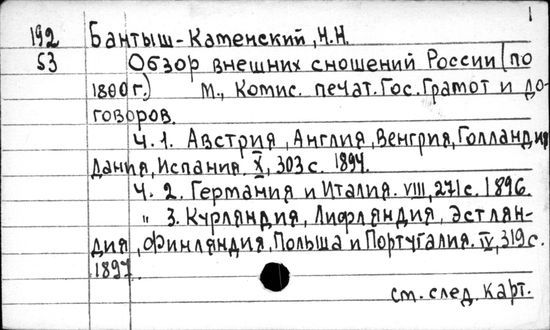 1
192 Бантыш-Каменский, Н.Н.
53 Обзор внешних сношений России (по
1800 г.) М., Комис. печат. Гос. Грамот и до-
говоров.
Ч. 1. Австрия, Англия, Венгрия, Голландия
Дания, Испания. X, 303 с. 1894.
Ч. 2. Германия и Италия. VIII, 271 с. 1896.
" 3. Курляндия, Лифляндия, Эстлян-
дия, Финляндия, Польша и Португалия. IV, 319 с.
1897.
см. след. карт.